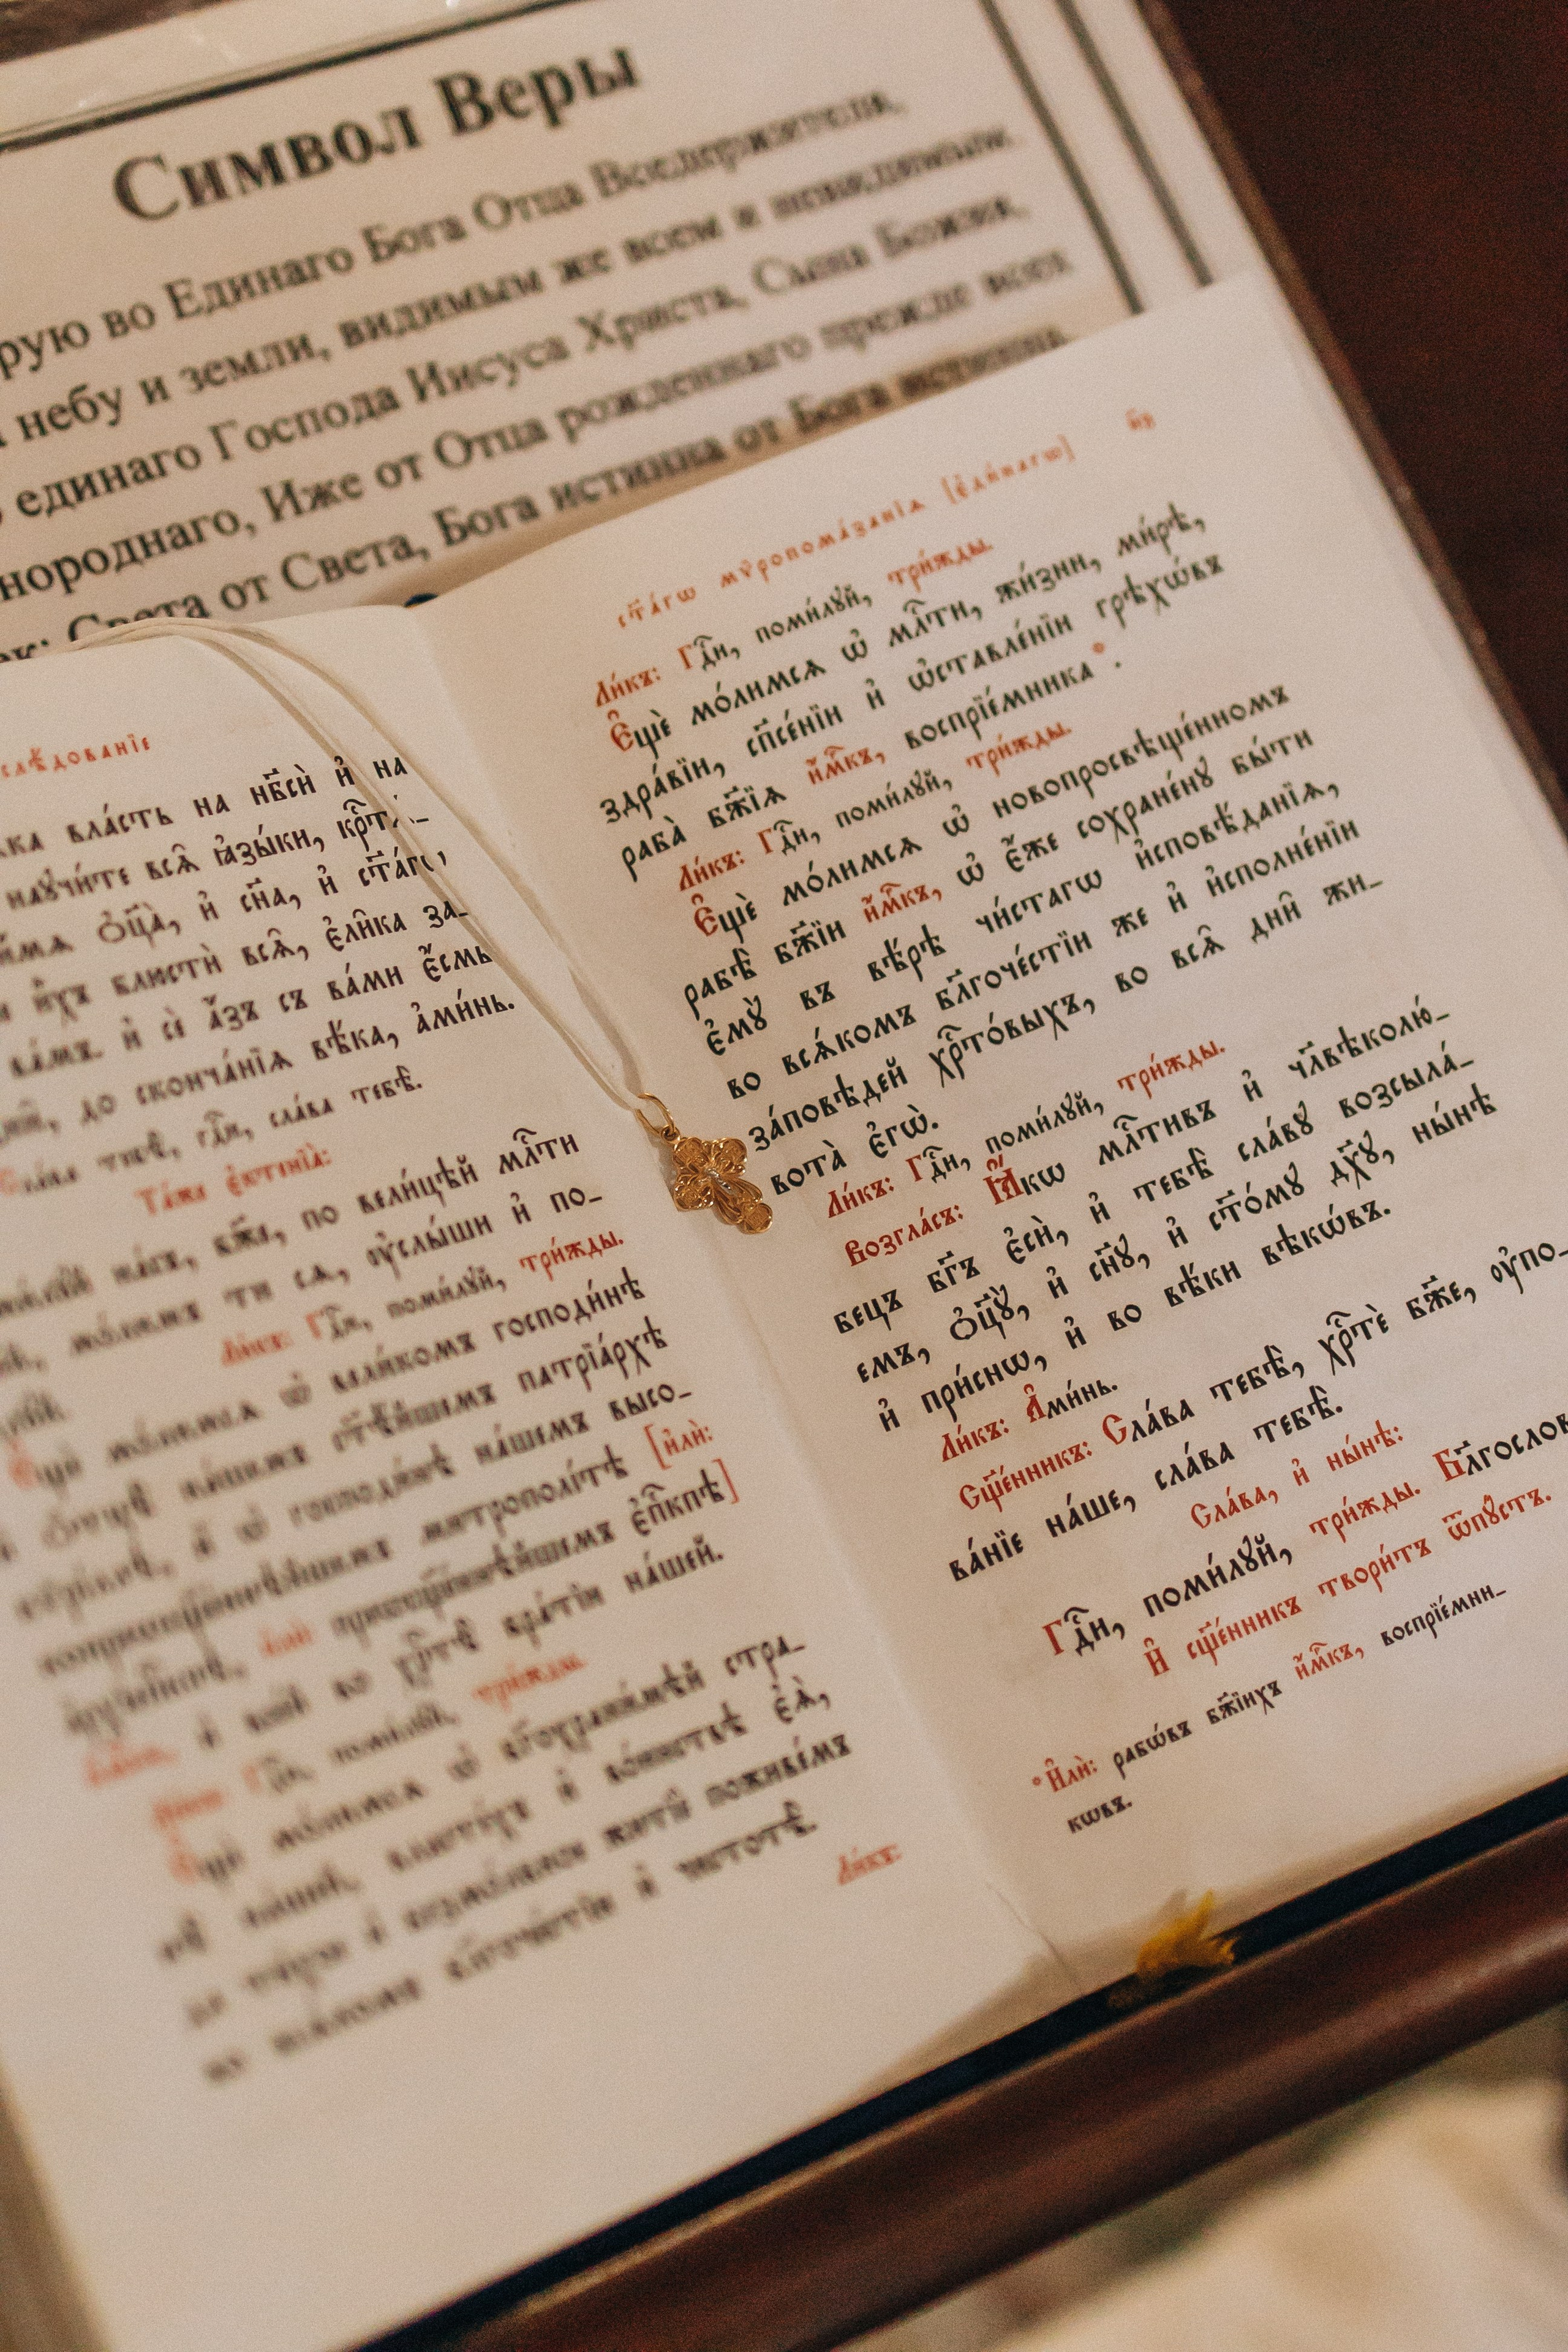 Символ Веры
рую во Единаго Бога Отца Вседержителя,
небу и земли, видимым же всем и невидимым.
единаго Господа Иисуса Христа, Сына Божия,
нороднаго, Иже от Отца рожденнаго прежде всех
ек: Света от Света, Бога истинна от Бога истинна,
слѣ́дованїе
вла́сть на нб҃сѝ и҆ на
научи́те всѧ̑ ꙗ҆зы́ки, крⷭ҇тѧ́_
ѻ҆ц҃а̀, и҆ сн҃а, и҆ ст҃а́гѡ,
и҆̀хъ блюстѝ всѧ̑, є҆ли̑ка за_
ва́мъ. и҆ сѐ а҆́зъ съ ва́ми є҆́смь
до сконча́нїѧ вѣ́ка, а҆ми́нь.
Сла́ва тебѣ̀, гдⷭ҇и, сла́ва тебѣ̀.
Та́же є҆ктенїа̀:
на́съ, бж҃е, по вели́цѣй млⷭ҇ти
мо́лимъ ти сѧ, ᲂу҆слы́ши и҆ по_
Ли́къ: Гдⷭ҇и, поми́лꙋй, три́жды.
мо́лимсѧ ѡ҆ вели́комъ господи́нѣ
на́шемъ ст҃ѣ́йшемъ патрїа́рхѣ
и҆ ѡ҆ господи́нѣ на́шемъ высо_
митрополі́тѣ [и҆лѝ:
и҆лѝ: преѡсщ҃е́ннѣйшемъ є҆пⷭ҇кпѣ]
и҆ все́й во хрⷭ҇тѣ̀ бра́тїи на́шей.
Гдⷭ҇и, поми́лꙋй, три́жды.
мо́лимсѧ ѡ҆ бг҃охрани́мѣй стра_
на́шей, власте́хъ и҆ во́инствѣ є҆ѧ̀,
и҆ безмо́лвное житїѐ поживе́мъ
бл҃гоче́стїи и҆ чистотѣ̀.
Ли́къ:
ст҃а́гѡ мѵ́ропома́занїѧ [є҆ди́нагѡ]
Ли́къ: Гдⷭ҇и, поми́лꙋй, три́жды.
Є҆щѐ мо́лимсѧ ѡ҆ млⷭ҇ти, жи́зни, ми́рѣ,
здра́вїи, сп҃се́нїи и҆ ѡ҆ставле́нїи грѣхѡ́въ
раба̀ бж҃їѧ и҆́мⷬ҇къ, воспрїе́мника *.
Ли́къ: Гдⷭ҇и, поми́лꙋй, три́жды.
Є҆щѐ мо́лимсѧ ѡ҆ новопросвѣще́нномъ
рабѣ̀ бж҃їи и҆́мⷬ҇къ, ѡ҆ є҆́же сохране́нꙋ бы́ти
є҆мꙋ̀ въ вѣ́рѣ чи́стагѡ и҆сповѣ́данїѧ,
во всѧ́комъ бл҃гоче́стїи же и҆ и҆сполне́нїи
за́повѣдей хрⷭ҇то́выхъ, во всѧ̑ дни̑ жи_
вота̀ є҆гѡ̀.
Ли́къ: Гдⷭ҇и, поми́лꙋй, три́жды.
Возгла́съ: Ꙗ҆́кѡ млⷭ҇тивъ и҆ чл҃вѣколю́_
бецъ бг҃ъ є҆сѝ, и҆ тебѣ̀ сла́вꙋ возсыла́_
емъ, ѻ҆ц҃ꙋ̀, и҆ сн҃ꙋ, и҆ ст҃о́мꙋ дх҃ꙋ, ны́нѣ
и҆ при́снѡ, и҆ во вѣ́ки вѣкѡ́въ.
Ли́къ: А҆ми́нь.
Сщ҃е́нникъ: Сла́ва тебѣ̀, хрⷭ҇тѐ бж҃е, ᲂу҆по_
ва́нїе на́ше, сла́ва тебѣ̀.
Сла́ва, и҆ ны́нѣ:
Гдⷭ҇и, поми́лꙋй, три́жды. Бл҃гослов
И҆ сщ҃е́нникъ твори́тъ ѿпꙋ́стъ.
* И҆лѝ: рабѡ́въ бж҃їихъ и҆́мⷬ҇къ, воспрїе́мни_
кѡвъ.